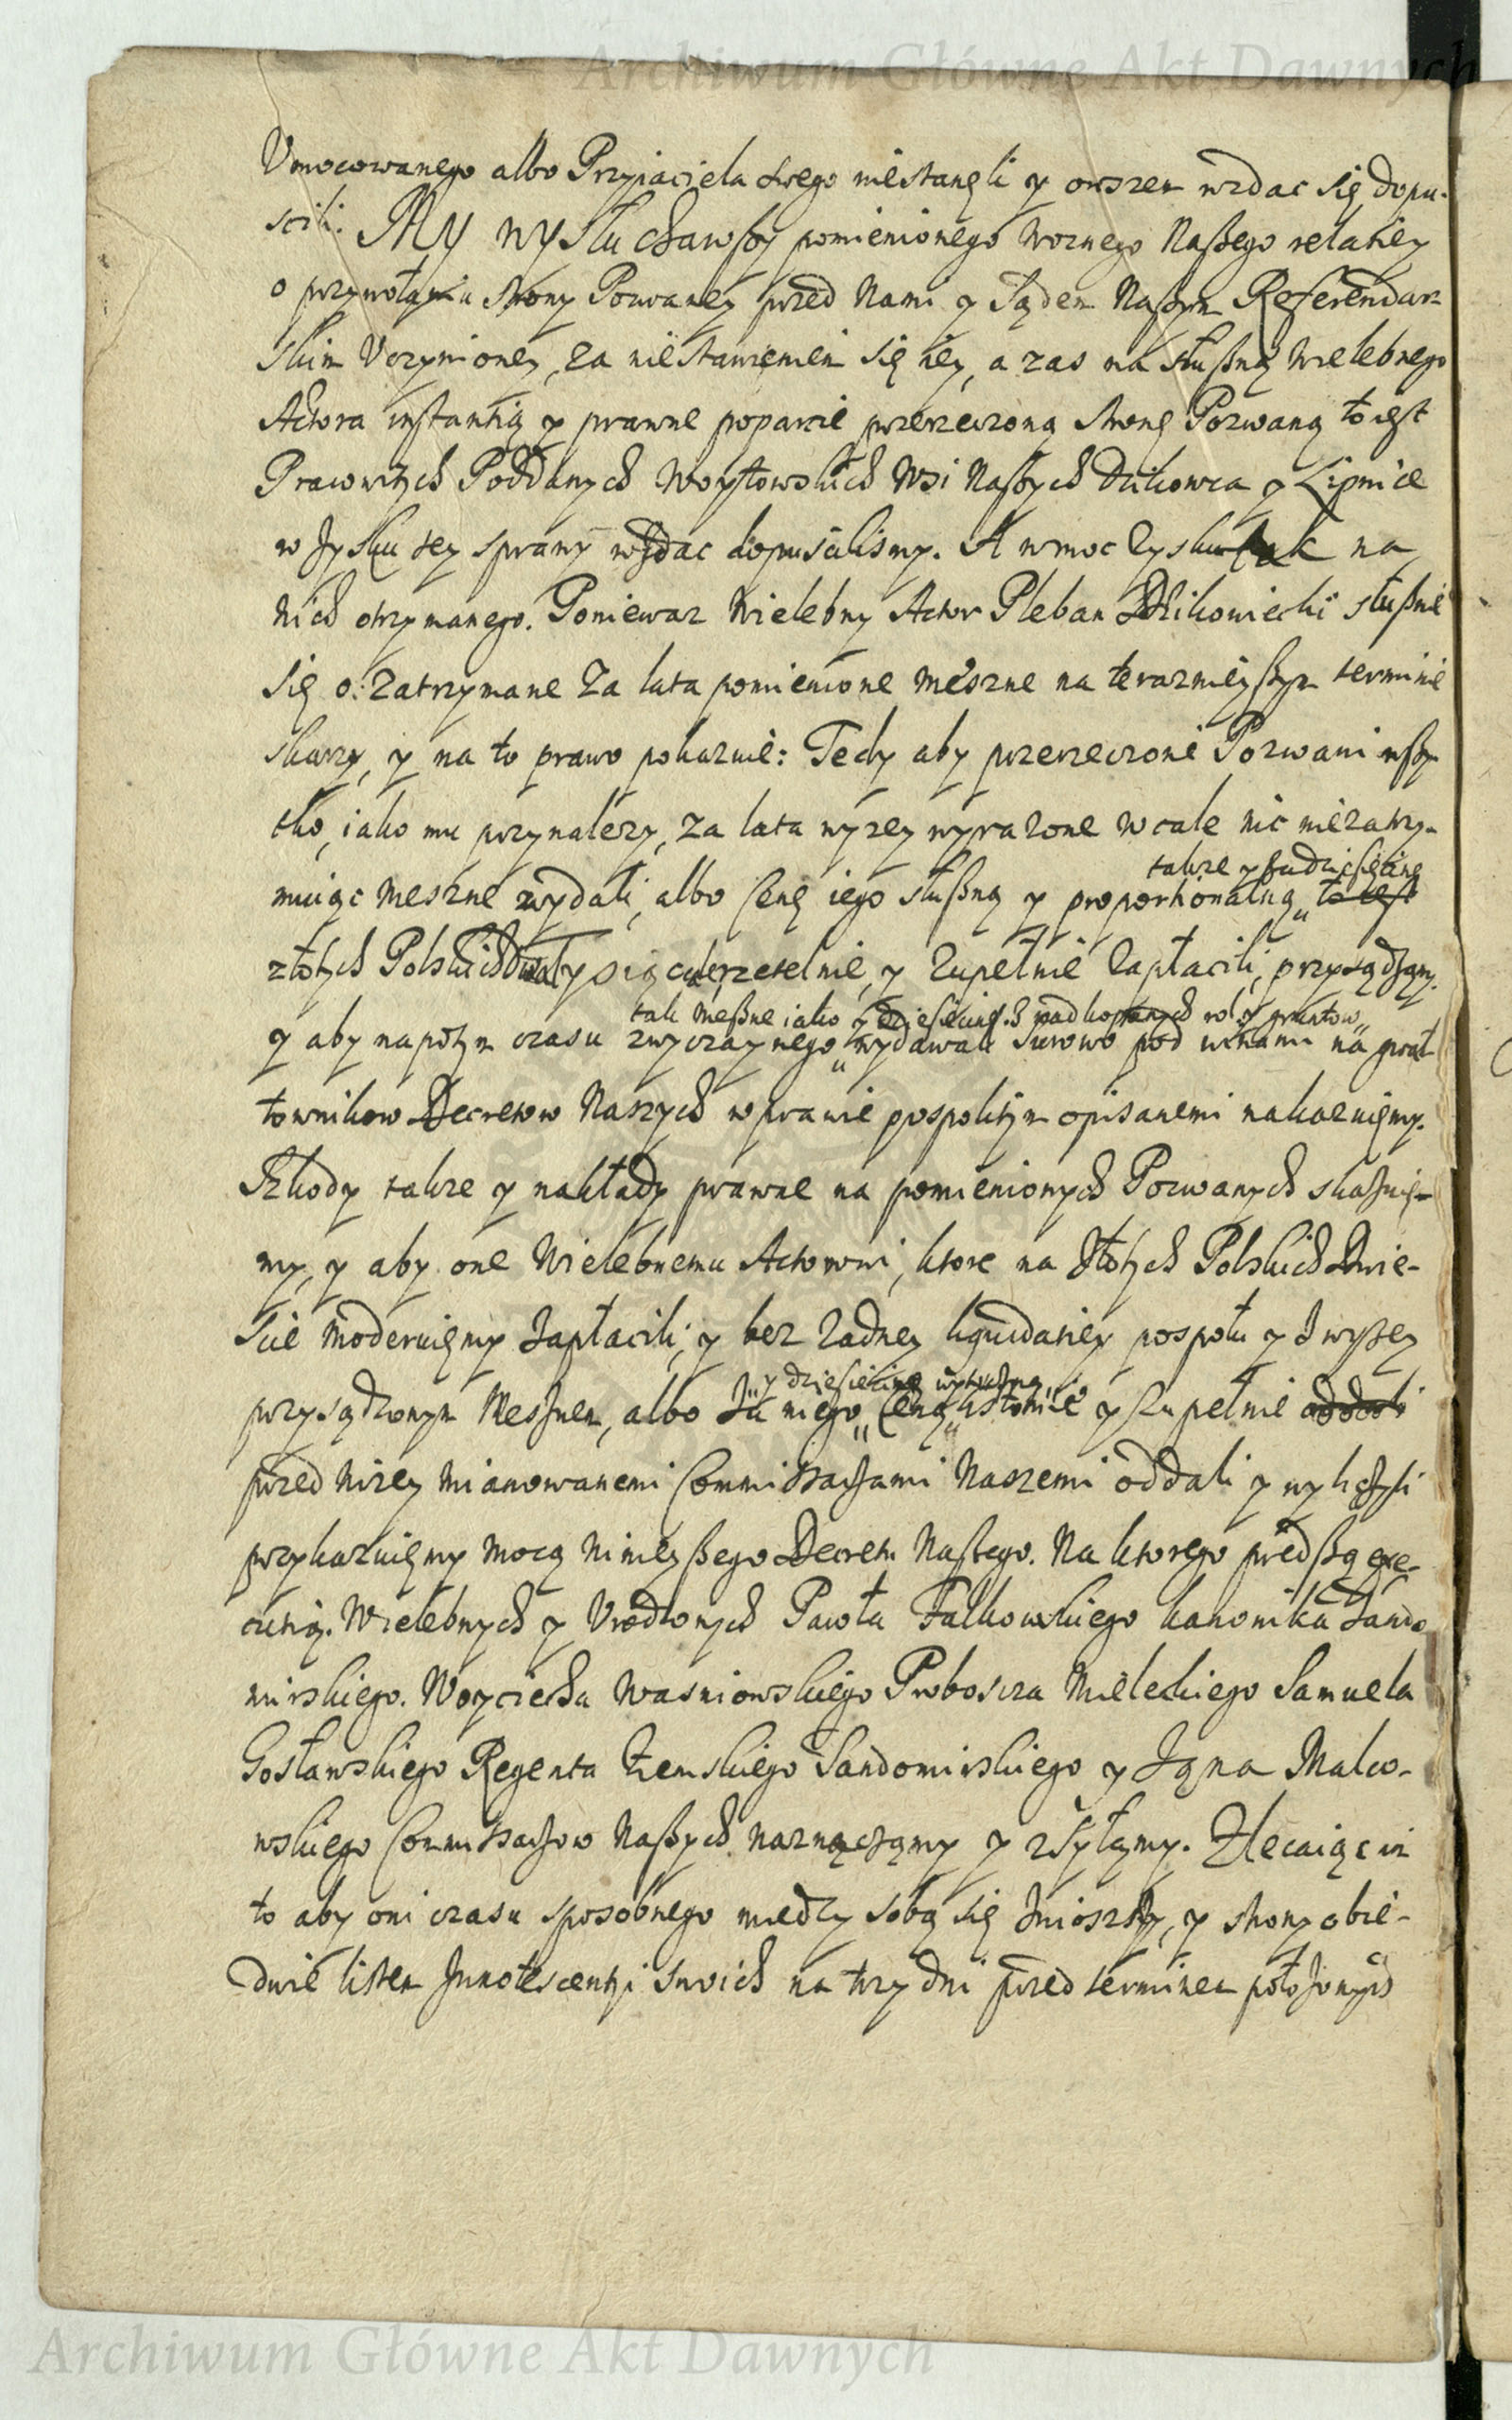 Archiwum Główne Akt Dawnych
Vmocowanego albo Przyiaciela swego niestanęli y owszem wzdac się dopu-
scili. My wysłuchawszy pomienionego Woznego Naszego relatiey
o przywołaniu strony Pozwaney przed Nami y Sądem Naszym Referendar-
skim Vczynioney, za niestawieniem się iey, a zas na słuszną Wielebnego
Actora instantią y prawne poparcie przerzeczoną stronę Pozwaną to iest
Pracowitych Poddanych Woytowskich Wsi Naszych Dzikowca y Lipnice
w zysku tey sprawy wzdac dopuscilismy. A wmoc zysku tak na
nich otrzymanego. Poniewaz Wielebny Actor Pleban Dzikowiecki słusznie
się o zatrzymane za lata pomienione meszne na teraznieyszym terminie
skarzy, y na to prawo pokazuie: Tedy aby przerzeczoni Pozwani wszy-
tko, iako mu przynalezy, za lata wyzey wyrazone wcale nic niezatrzy-
takze y dziesięcinę
muiąc meszne wydali, albo cenę iego słuszną y proportionalną to iest
złotych Polskich tysiąc rzetelnie, y zupełnie zapłacili, przysądzamy.
tak meszne iako y dziesięcinę z nadkopanych rol y gruntow
y aby napotym czasu zwyczaynego wydawali surowo pod winami na gwał-
townikow Decretow Naszych w prawie pospolitym opisanemi nakazuiemy.
Szkody takze y nakłady prawne na pomienionych Pozwanych skazuie-
my, y aby one Wielebnemu Actorowi, ktore na złotych Polskich Dwie-
scie moderuiemy zapłacili, y bez zadney liquidatiey pospołu y z wyszey
y dziesięcinę wytyczną
przysądzonym Mesznem, albo za niego ceną istotnie y zupełnie oddali
przed nizey mianowanemi Commissarzami Naszemi oddali y wyliczyli
przykazuiemy mocą ninieyszego Decretu Naszego. Na ktorego przedszą exe-
cutią. Wielebnych y Vrodzonych Pawła Falkowskiego kanonika Sando-
mirskiego. Woyciecha Wasniowskiego Proboscza Mieleckiego Samuela
Gosławskiego Regenta Ziemskiego Sandomirskiego y Jana Malco-
wskiego Commissarzow Naszych naznączamy y zsyłamy. Zlecaiąc im
to aby oni czasu sposobnego miedzy sobą się zniozszy, y strony obie-
dwie listem Innotescentyi swoich na trzy dni przed terminem położonych
Archiwum Główne Akt Dawnych